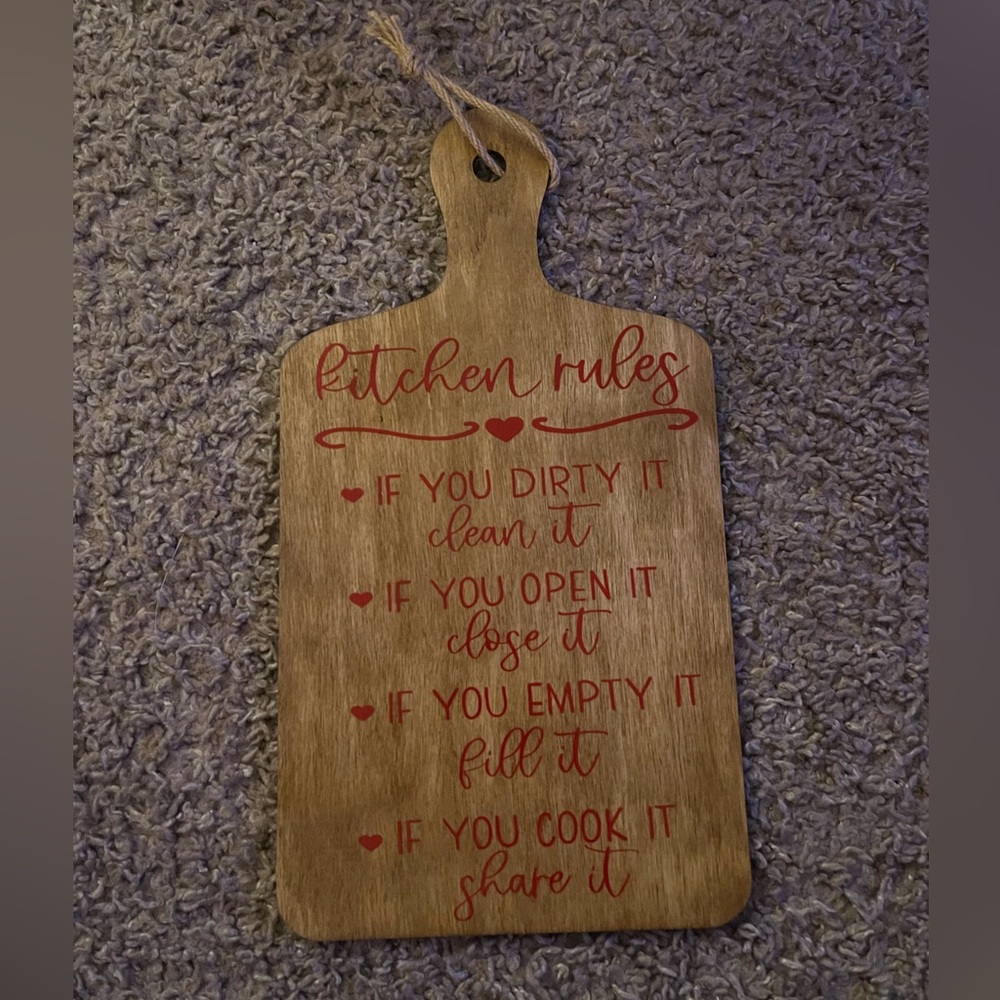 kitchen rules
IF YOU DIRTY IT
clean it
IF YOU OPEN IT
close it
IF YOU EMPTY IT
fill it
IF YOU COOK IT
share it